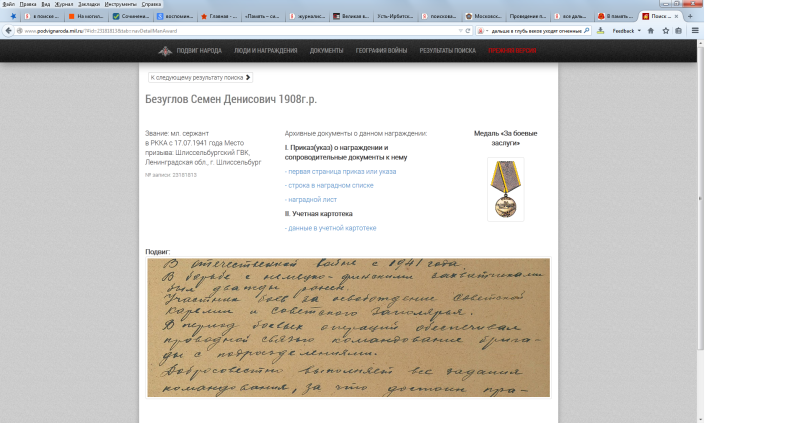 Файл Правка Вид Журнал Закладки Инструменты Справка
в поиске ...
На могил...
Сочинени...
воспомин...
Главная - ...
«Память – св...
журналис...
Великая в...
Усть-Ирбитск...
поискова...
Московск...
Проведение п...
все даль...
В память ...
Поиск ...
www.podvignaroda.mil.ru/?#id=23181813&tab=navDetailManAward
дальше в глубь веков уходят огненные
Feedback
ПОДВИГ НАРОДА ЛЮДИ И НАГРАЖДЕНИЯ ДОКУМЕНТЫ ГЕОГРАФИЯ ВОЙНЫ РЕЗУЛЬТАТЫ ПОИСКА ПРЕЖНЯЯ ВЕРСИЯ
К следующему результату поиска
Безуглов Семен Денисович 1908г.р.
Звание: мл. сержант
в РККА с 17.07.1941 года Место
призыва: Шлиссельбургский ГВК,
Ленинградская обл., г. Шлиссельбург
№ записи: 23181813
Архивные документы о данном награждении:
I. Приказ(указ) о награждении и
сопроводительные документы к нему
- первая страница приказ или указа
- строка в наградном списке
- наградной лист
II. Учетная картотека
- данные в учетной картотеке
Медаль «За боевые
заслуги»
Подвиг:
В отечественной войне с 1941 года.
В борьбе с немецко-финскими захватчиками
был дважды ранен.
Участник боев за освобождение Советской
Карелии и Советского Заполярья.
В период боевых операций обеспечивал
проводной связью командование брига-
ды с подразделениями.
Добросовестно выполняет все задания
командования, за что достоин пра-